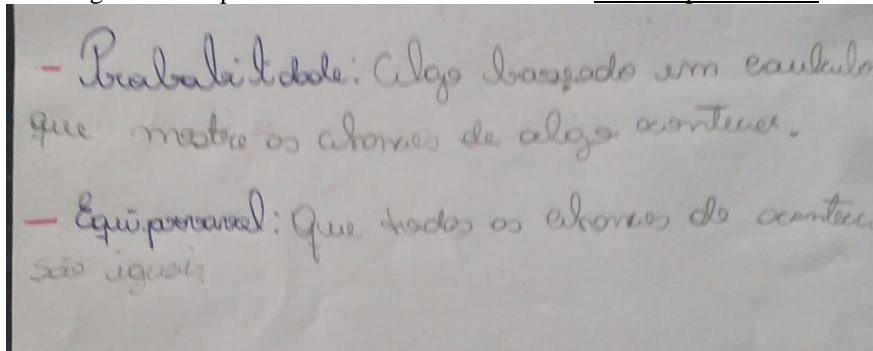 - Probabilidade: Algo baseado em caulculo
que mostre os chances de algo acontecer.
- Equiprovavel: Que todos os chances de acontecer
são iguais